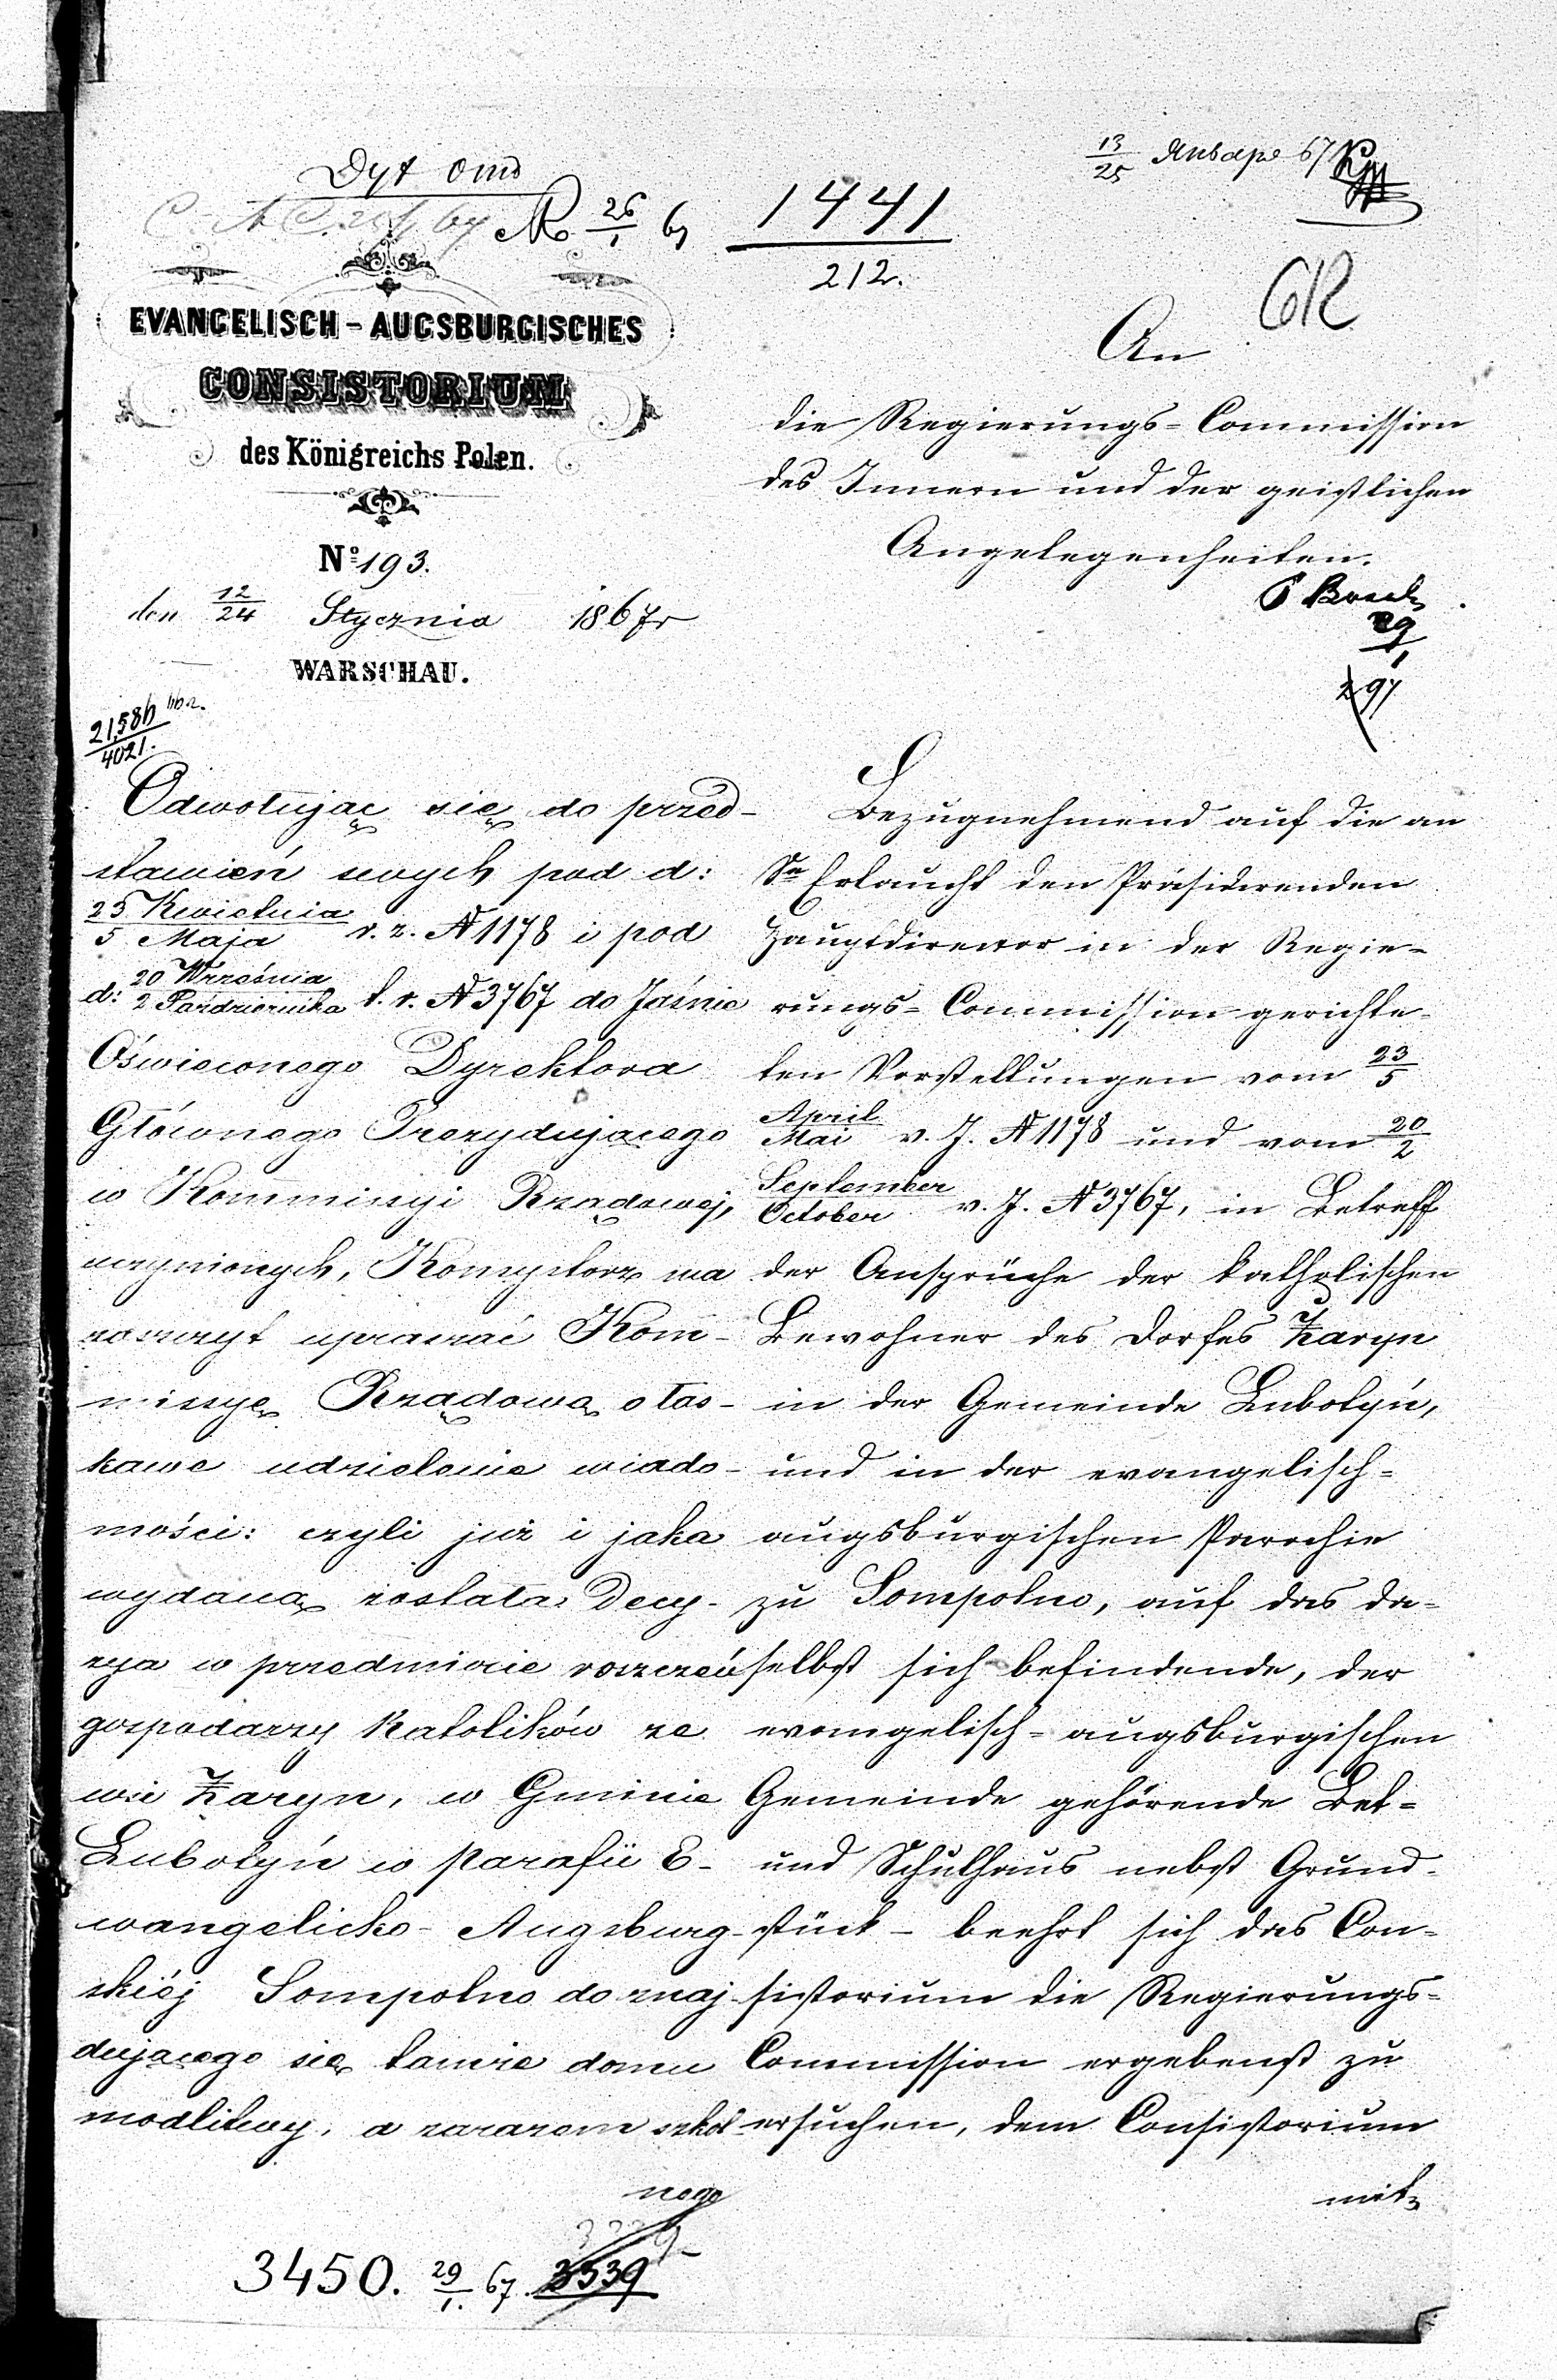 13/25 Январе 67
1441
212.
26/1 67
EVANGELISCH-AUGSBURGISCHES
CONSISTORIUM
des Königreichs Polen.
Nº 193.
den 12/24 Stycznia 1867 r
WARSCHAU.
4021.
An
die Regierungs-Commission
des Innern und der geistlichen
Angelegenheiten.
29/1
297
Odwołując się do przed-
stawień swych pod d:
25 Kwietnia / 5 Maja r. z. N 1178 i pod
d: 20 Września / 2 Października t. r. N 3767 do Jaśnie
Oświeconego Dyrektora
Głównego Prezydującego
w Kommissyi Rządowej,
uczynionych, Konsystorz ma
zaszczyt upraszać Kom-
missyę Rządową o łas-
kawe udzielenie wiado-
mości: czyli już i jaka
wydaną została Decy-
zya w przedmiocie roszczeń
gospodarzy Katolików ze
wsi Żaryn, w Gminie
Lubotyń w Parafii E-
wangelicko-Augsburg-
skiéj Sompolno do znaj-
dującego się tamże domu
modlitwy, a zarazem szkol-
nego
Bezugnehmend auf die an
Se Erlaucht den Präsidirenden
Hauptdirector in der Regie-
rungs-Commission gerichte-
ten Vorstellungen vom 23/5
April/Mai v. J. N 1178 und vom 20/2
September/October v. J. N 3767, in Betreff
der Ansprüche der katholischen
Bewohner des Dorfes Żaryn
in der Gemeinde Lubotyń,
und in der evangelisch-
augsburgischen Parochie
zu Sompolno, auf das da-
selbst sich befindende, der
evangelisch-augsburgischen
Gemeinde gehörende Bet-
und Schulhaus nebst Grund-
stück - beehrt sich das Con-
sistorium die Regierungs-
Commission ergebenst zu
ersuchen, dem Consistorium
mit
3450. 29/1. 67. 3539